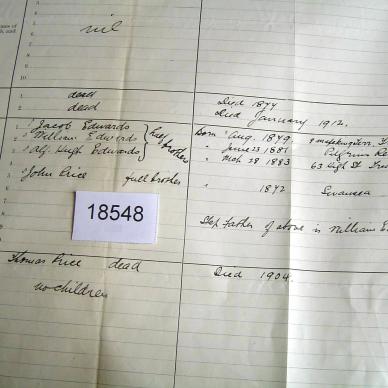 nil
1. dead Died 1877
2. dead Died January 1912.
1 Jacob Edwards Born Aug. 1879
2 William Edwards half brothers " June 23 1881 Pilgrims
3 Alf. Hugh Edwards " Mch 28 1883 63 High St
4 John Price full brother " 1872 Swansea
18548
Step father of above is William
Thomas Price dead Died 1904.
no children